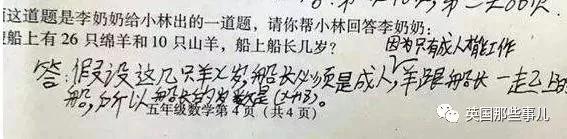 这道题是李奶奶给小林出的一道题，请你帮小林回答李奶奶：
船上有 26 只绵羊和 10 只山羊，船上船长几岁？
因为只有成人才能工作
答：假设这几只羊x岁，船长必须是成人，羊跟船长一起上的
船，所以船长的岁数是（x+18）。
五年级数学第 4 页（共 4 页）
英国那些事儿